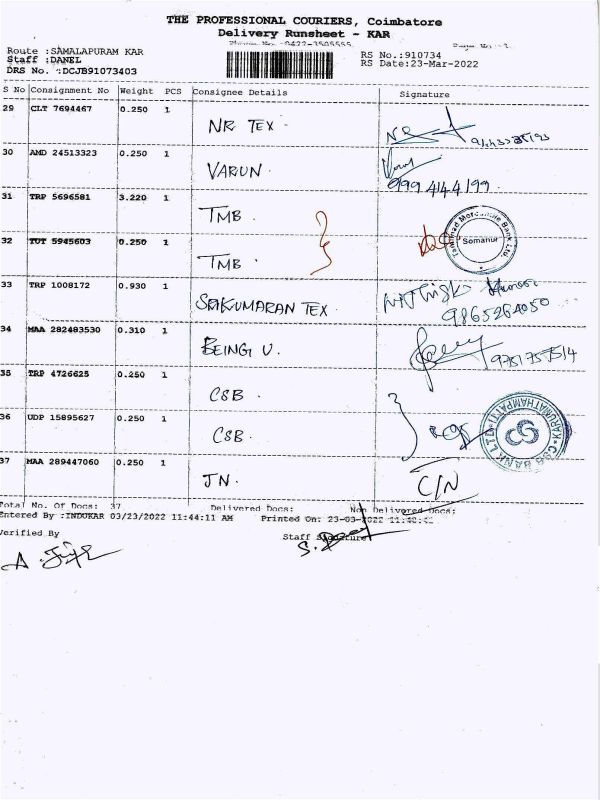 THE PROFESSIONAL COURIERS, Coimbatore
Delivery Runsheet - KAR
Phone No. 0422-3505555
Route :SAMALAPURAM KAR RS No.:910734
Staff :DANEL RS Date:23-Mar-2022
DRS No. :DCJB91073403
S No Consignment No Weight PCS Consignee Details Signature
29 CLT 7694467 0.250 1 NR TEX
30 AMD 24513323 0.250 1 VARUN
9994144199
31 TRP 5696581 3.220 1 TMB
Tamilnad Mercantile Bank Ltd.
Somanur
32 TUT 5945603 0.250 1 TMB
33 TRP 1008172 0.930 1 SRIKUMARAN TEX
9865264050
34 MAA 282483530 0.310 1 BEING U.
35 TRP 4726625 0.250 1 CSB
36 UDP 15895627 0.250 1 CSB
CSB BANK LTD KARUMATHAMPATTI
37 MAA 289447060 0.250 1 JN. C/N
Total No. Of Docs: 37 Delivered Docs: Non Delivered Docs:
Entered By :INDUKAR 03/23/2022 11:44:11 AM Printed On: 23-03-2022
Verified By Staff Signature